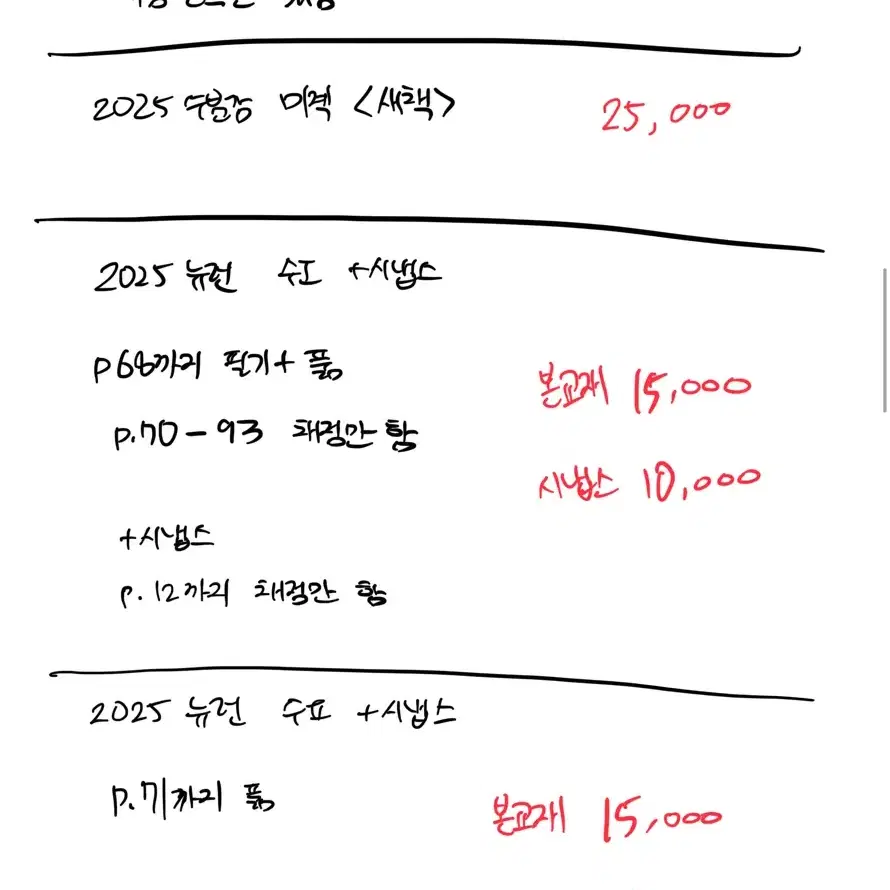 2025 수분감 미적 <새책> 25,000
2025 뉴런 수1 +시냅스
p68까지 필기+ 풂
본교재 15,000
p.70-93 채점만 함
시냅스 10,000
+시냅스
p.12까지 채점만 함
2025 뉴런 +시냅스
p.71까지 풂
본교재 15,000